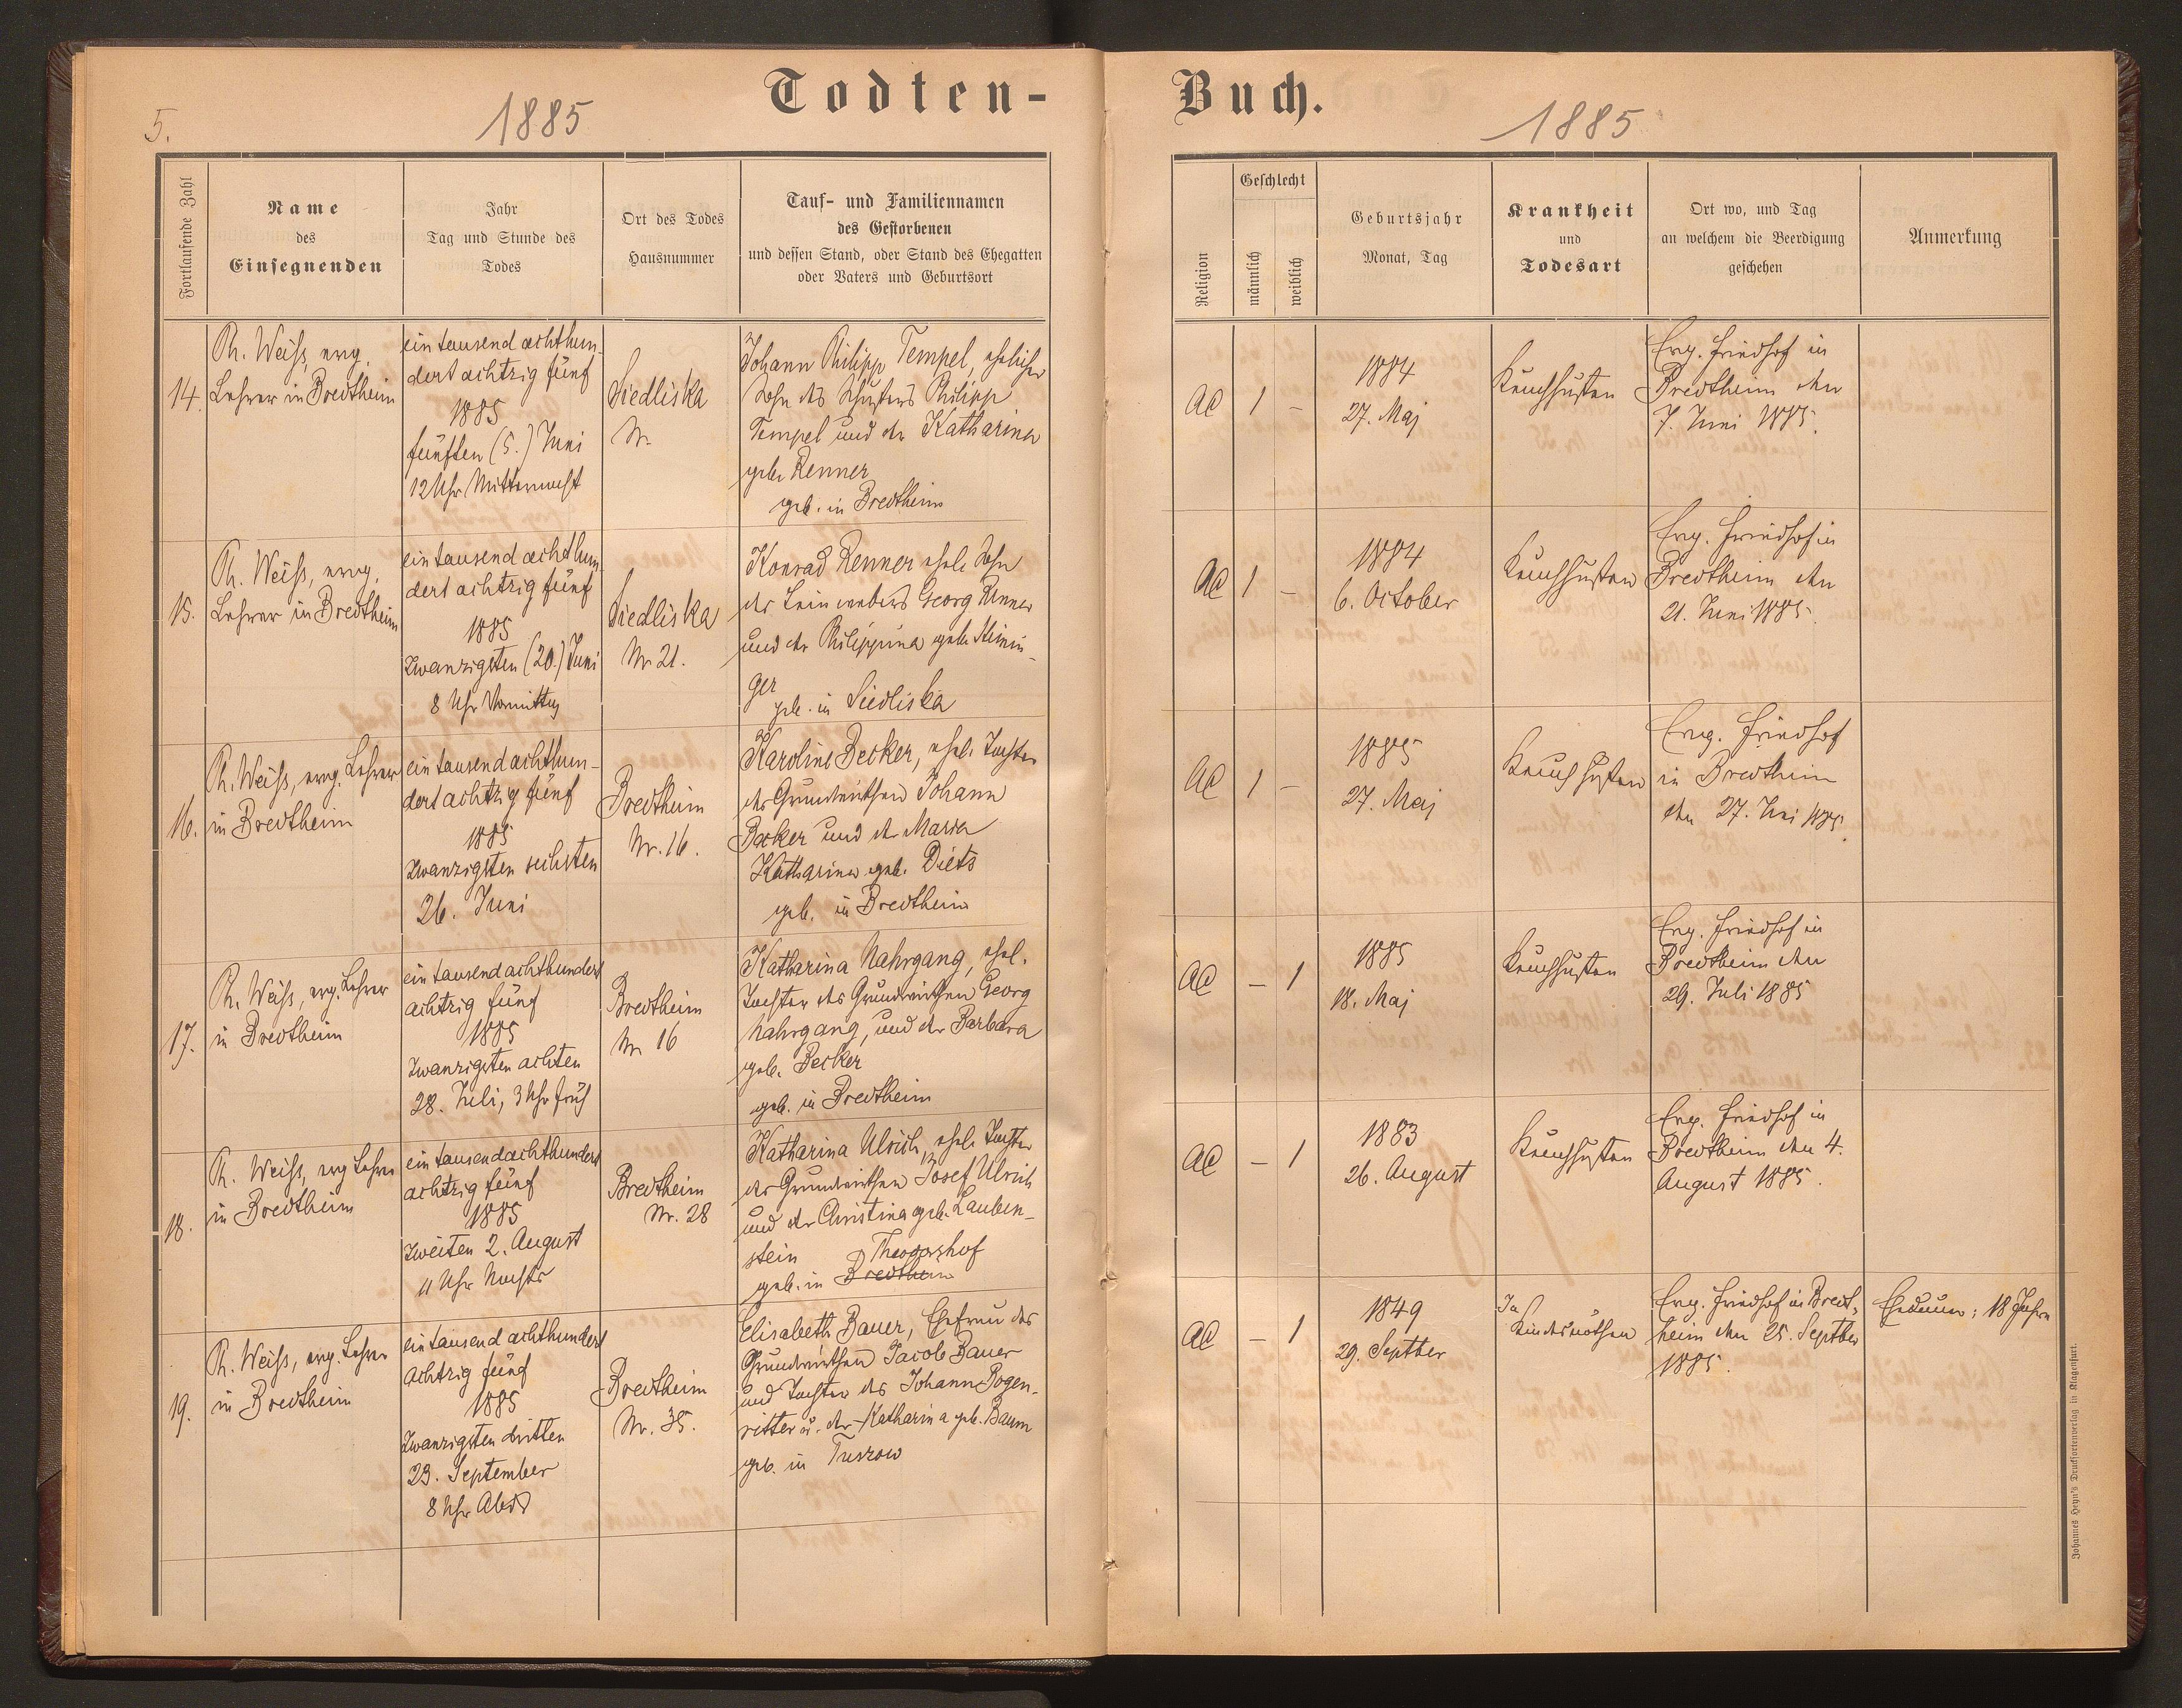 Todten-
Buch.
5.
1885
1885
Fortlaufende Zahl
Name
des
Einsegnenden
Jahr
Tag und Stunde des
Todes
Ort des Todes
Hausnummer
Tauf- und Familiennamen
des Gestorbenen
und dessen Stand, oder Stand des Ehegatten
oder Vaters und Geburtsort
Religion
Geschlecht
männlich
weiblich
Geburtsjahr
Monat, Tag
Krankheit
und
Todesart
Ort wo, und Tag
an welchem die Beerdigung
geschehen
Anmerkung
14.
Ph. Weiß, evng.
Lehrer in Bredtheim
ein tausend achthun-
dert achtzig fünf
1885
fünften (5.) Juni
12 Uhr Mitternacht
Siedliska
Nr.
Johann Philipp Tempel, ehelicher
Sohn des Schusters Philipp
Tempel und der Katharina
geb. Renner
geb. in Bredtheim
AC 1 -
1884
27. Maj
Keuchhusten
Evg. Friedhof in
Bredtheim den
7. Juni 1885.
15.
Ph. Weiß, evng.
Lehrer in Bredtheim
ein tausend achthun-
dert achtzig fünf
1885
zwanzigsten (20.) Juni
8 Uhr Vormittag
Siedliska
Nr 21.
Konrad Renner ehel. Sohn
des Leinwebers Georg Renner
und der Philippina geb.
ger
geb. in Siedliska
AC 1 -
1884
6. October
Keuchhusten
Evg. Friedhof in
Bredtheim den
21. Juni 1885.
16.
Ph. Weiß, evng. Lehrer
in Bredtheim
ein tausend achthun-
dert achtzig fünf
1885
zwanzigsten sechsten
26. Juni
Bredtheim
Nr. 16.
Karoline Becker, ehel. Tochter
des Grundwirthen Johann
Becker und der Maria
Katharina geb. Diets
geb. in Bredtheim
AC 1 -
1885
27. Maj
Keuchhusten
Evg. Friedhof
in Bredtheim
den 27. Juni 1885.
17.
Ph. Weiß, evg. Lehrer
in Bredtheim
ein tausend achthundert
achtzig fünf
1885
zwanzigsten achten
28. Juli, 3 Uhr früh
Bredtheim
Nr 16
Katharina Nahrgang, ehel.
Tochter des Grundwirthen Georg
Nahrgang, und der Barbara
geb. Becker
geb. in Bredtheim
AC - 1
1885
18. Maj
Keuchhusten
Evg. Friedhof in
Bredtheim den
29. Juli 1885
18.
Ph. Weiß, evg Lehrer
in Bredtheim
ein tausend achthundert
achtzig fünf
1885
zweiten 2. August
11 Uhr Nachts
Bredtheim
Nr. 28
Katharina Ulrich, ehel. Tochter
des Grundwirthen Josef Ulrich
und der Christina geb. Lauben-
stein Theodorshof
geb. in Bredtheim
AC - 1
1883
26. August
Keuchhusten
Evg. Friedhof in
Bredtheim den 4.
August 1885.
19.
Ph. Weiß, evg. Lehrer
in Bredtheim
ein tausend achthundert
achtzig fünf
1885
zwanzigsten dritten
23. September
8 Uhr Abds
Bredtheim
Nr. 35.
Elisabeth Bauer, Ehefrau des
Grundwirthen Jacob Bauer
und Tochter des Johann Bogen-
ritter u. der Katharina geb. Baum
geb. in Tuszow
AC - 1
1849
29. Septber
In
Kindesnöthen
Evg. Friedhof in Bredt-
heim den 25. Septber
1885.
Ehedauer: 18 Jahre
Johannes Heyn's Drucksortenverlag in Klagenfurt.